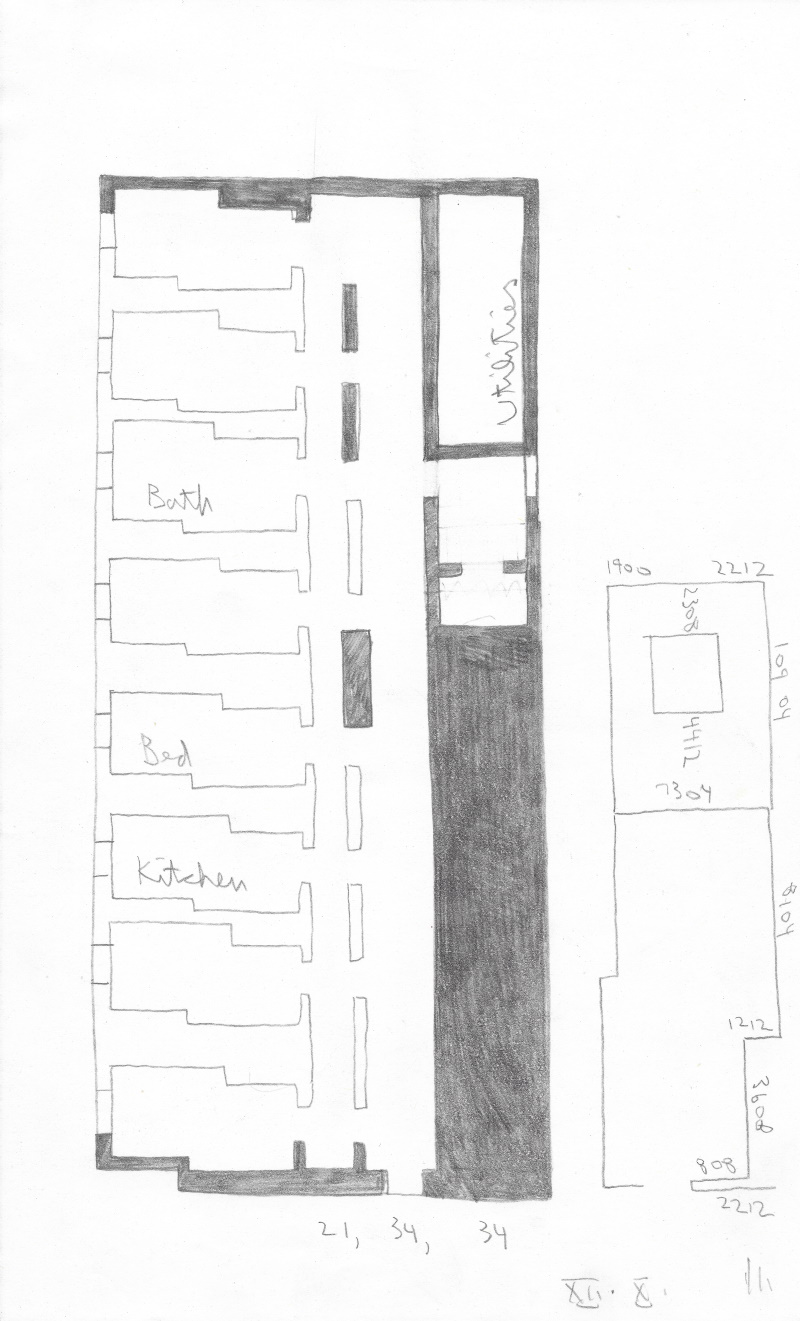 Utilities
Bath
Bed
Kitchen
1900 2212
2308
109 04
4412
7304
8104
1212
3608
808
2212
21, 34, 34
XII. X.